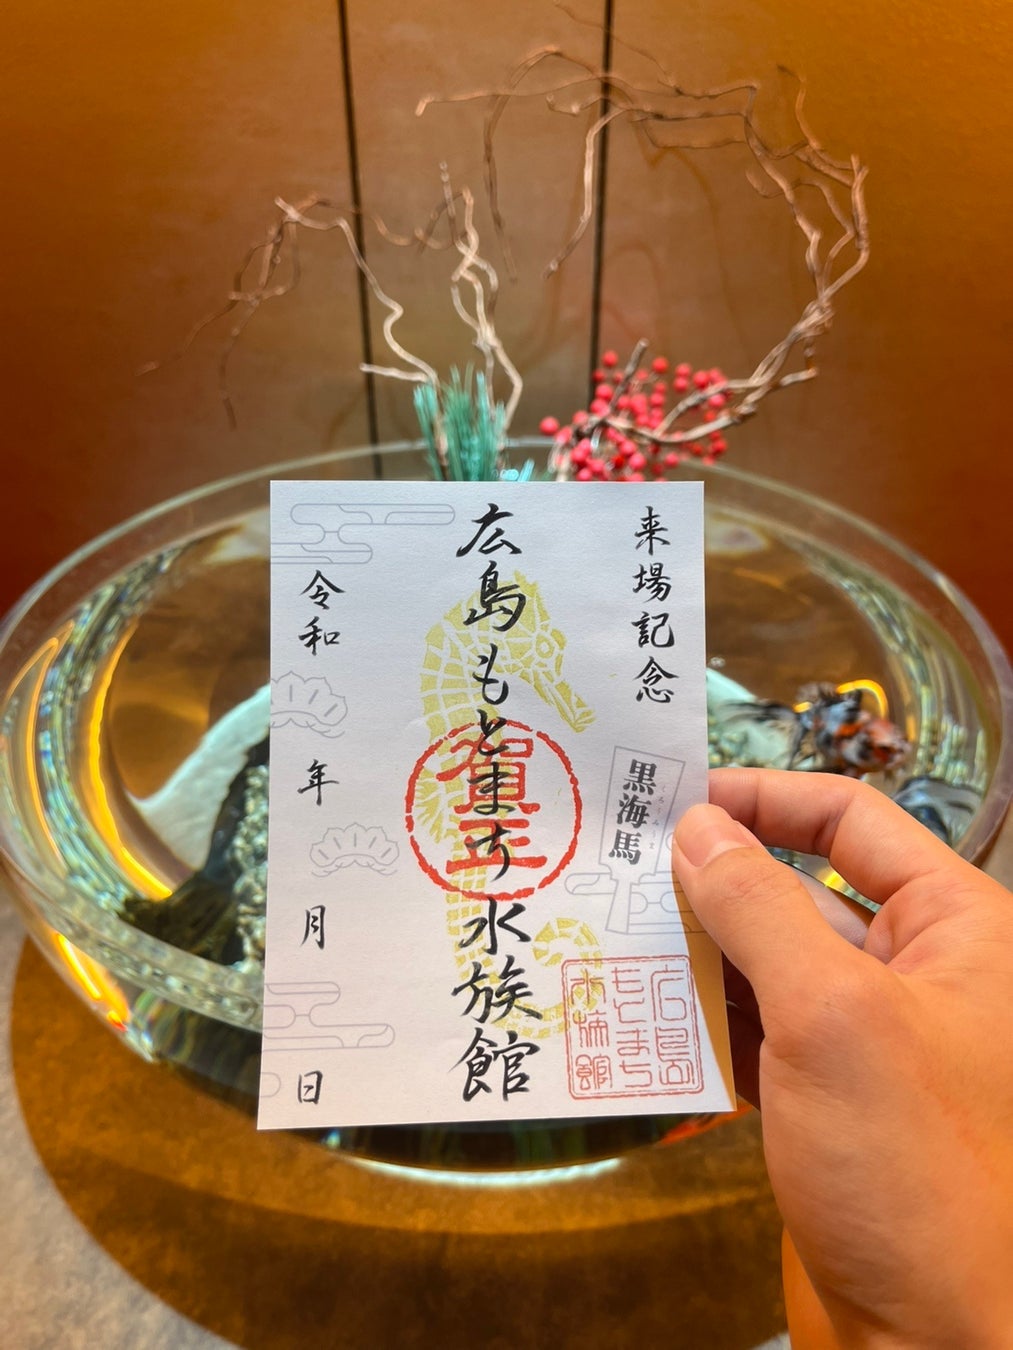 来場記念
黒海馬
くろうみうま
広島もとまち水族館
賀正
広島
もとまち
水族館
令和 年 月 日